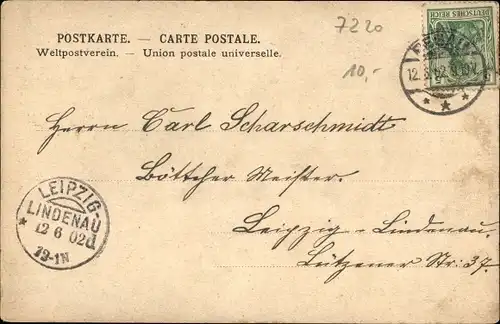 7220
POSTKARTE. — CARTE POSTALE.
Weltpostverein. — Union postale universelle.
10,-
DEUTSCHES REICH
Herrn Carl Scharschmidt
Böttcher Meister.
Leipzig-Lindenau.
Lützener Str: 37.
LEIPZIG-
LINDENAU
* 12 6 02 d